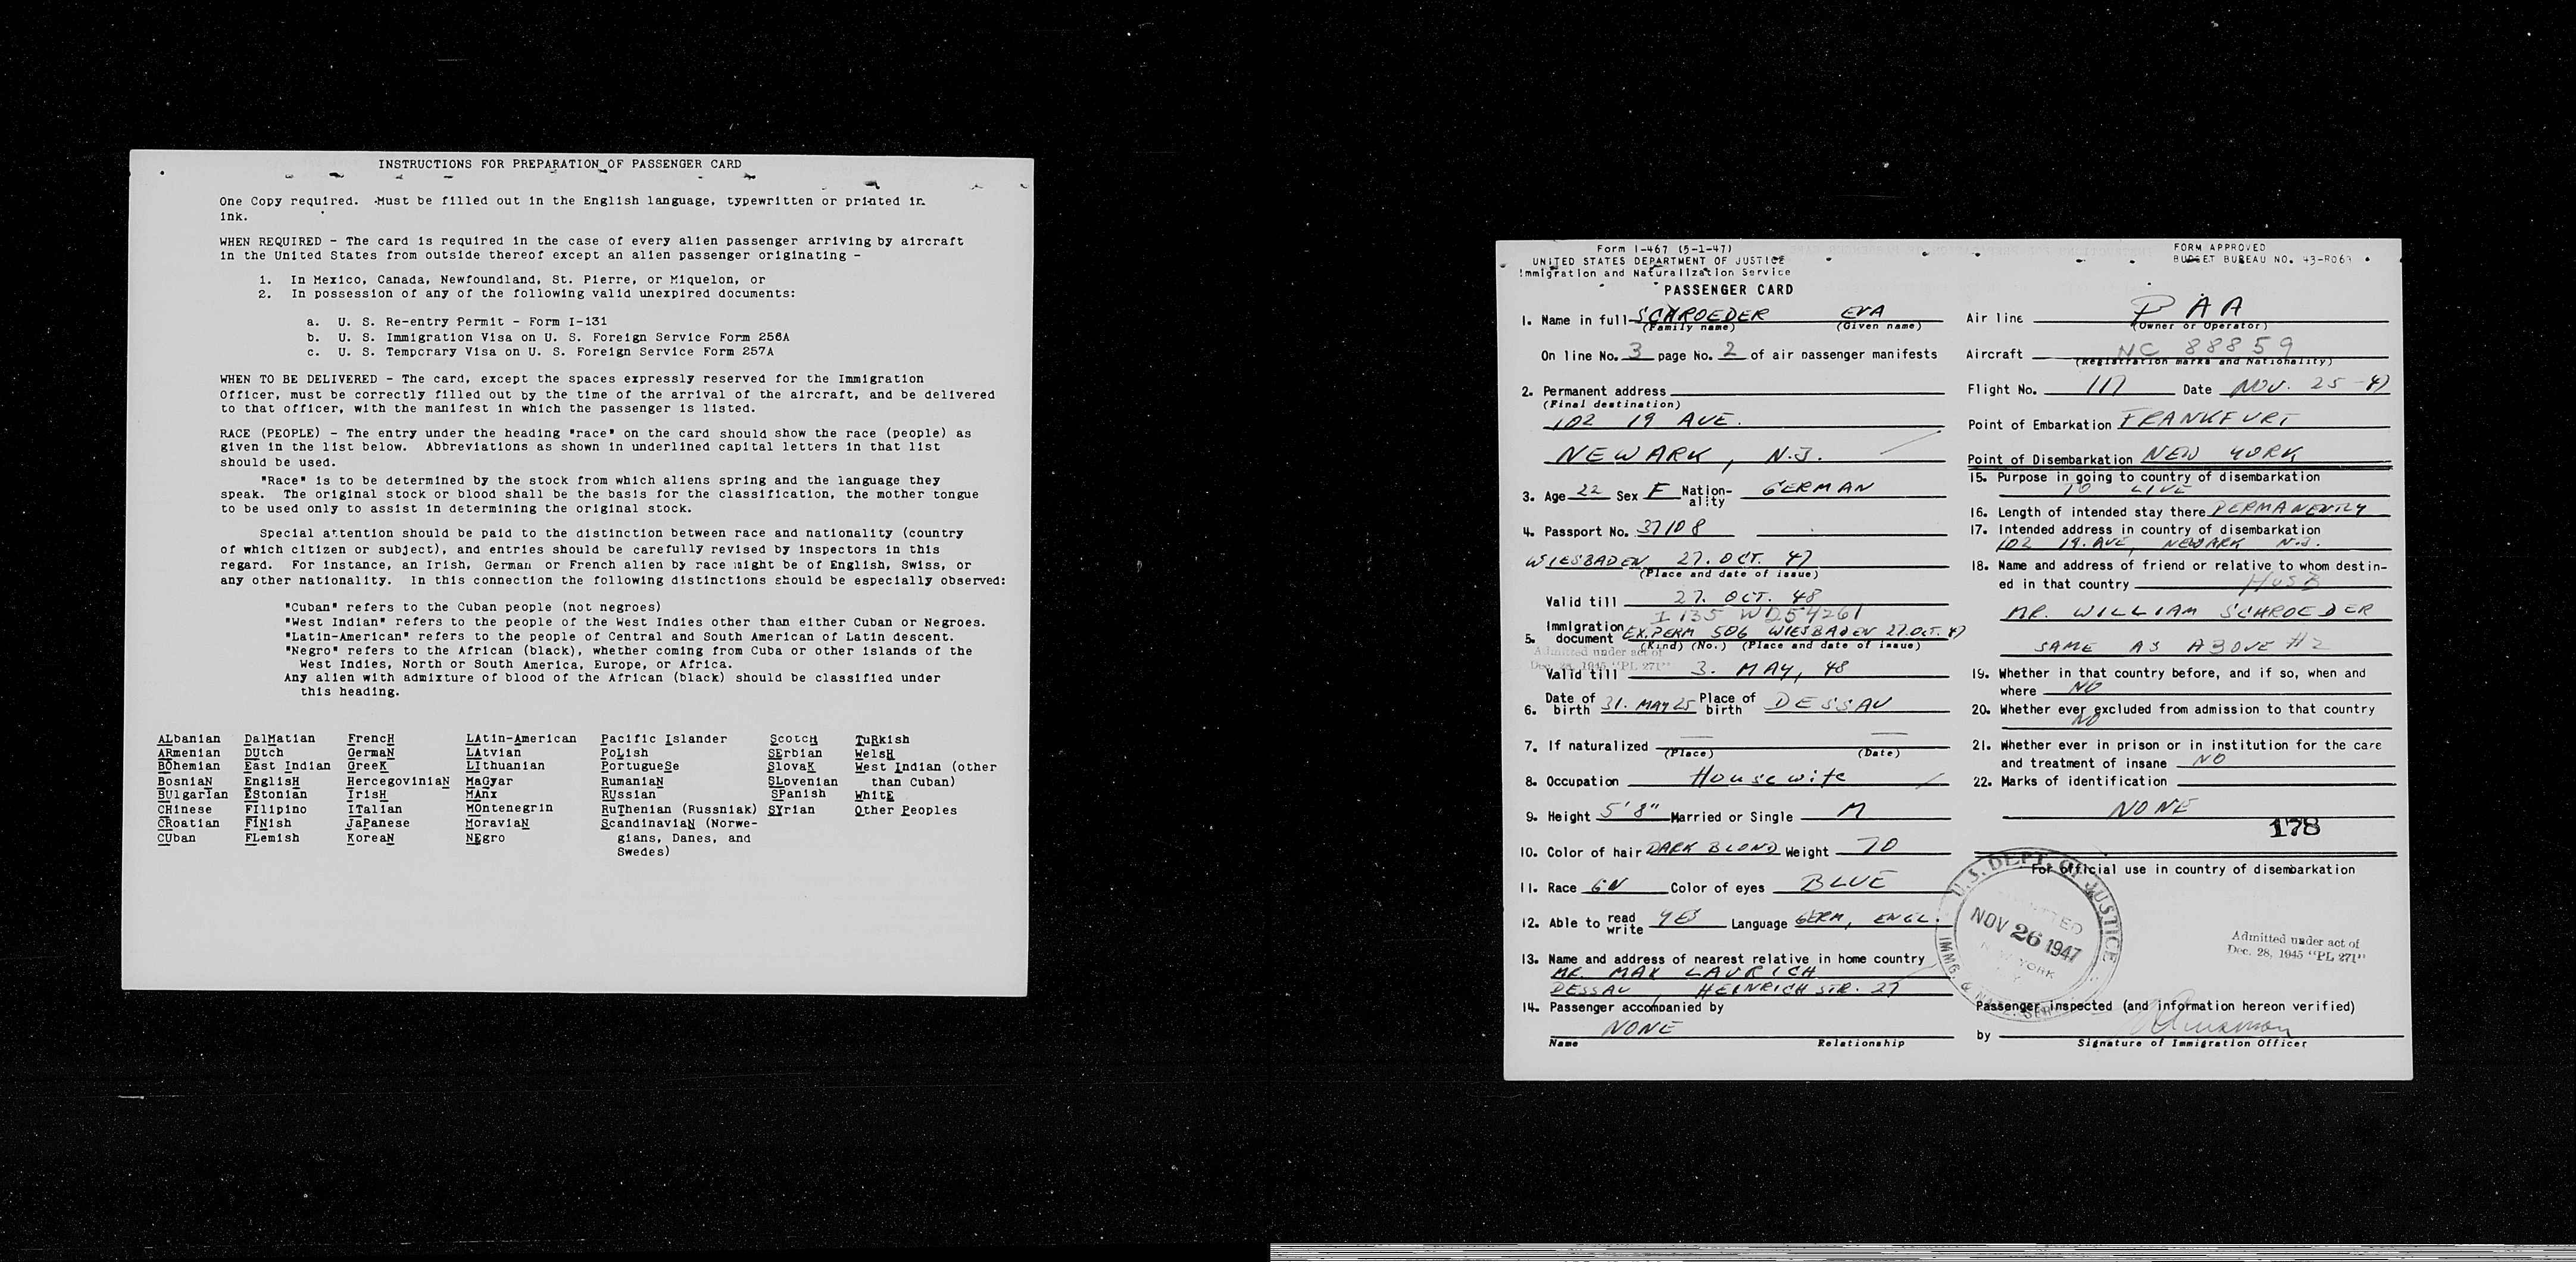 INSTRUCTIONS FOR PREPARATION OF PASSENGER CARD
One Copy required. Must be filled out in the English language, typewritten or printed in
ink.
WHEN REQUIRED - The card is required in the case of every alien passenger arriving by aircraft
in the United States from outside thereof except an alien passenger originating -
1. In Mexico, Canada, Newfoundland, St. Pierre, or Miquelon, or
2. In possession of any of the following valid unexpired documents:
a. U. S. Re-entry Permit - Form I-131
b. U. S. Immigration Visa on U. S. Foreign Service Form 256A
c. U. S. Temporary Visa on U. S. Foreign Service Form 257A
WHEN TO BE DELIVERED - The card, except the spaces expressly reserved for the Immigration
Officer, must be correctly filled out by the time of the arrival of the aircraft, and be delivered
to that officer, with the manifest in which the passenger is listed.
RACE (PEOPLE) - The entry under the heading "race" on the card should show the race (people) as
given in the list below. Abbreviations as shown in underlined capital letters in that list
should be used.
"Race" is to be determined by the stock from which aliens spring and the language they
speak. The original stock or blood shall be the basis for the classification, the mother tongue
to be used only to assist in determining the original stock.
Special attention should be paid to the distinction between race and nationality (country
of which citizen or subject), and entries should be carefully revised by inspectors in this
regard. For instance, an Irish, German or French alien by race might be of English, Swiss, or
any other nationality. In this connection the following distinctions should be especially observed:
"Cuban" refers to the Cuban people (not negroes)
"West Indian" refers to the people of the West Indies other than either Cuban or Negroes.
"Latin-American" refers to the people of Central and South American of Latin descent.
"Negro" refers to the African (black), whether coming from Cuba or other islands of the
West Indies, North or South America, Europe, or Africa.
Any alien with admixture of blood of the African (black) should be classified under
this heading.
ALbanian DalMatian FrencH LAtin-American Pacific Islander ScotcH TuRkish
ARmenian DUtch GermaN LAtvian PoLish SErbian WelsH
BOhemian East Indian GreeK LIthuanian PortugueSe SlovaK West Indian (other
BosniaN EnglisH HercegoviniaN MaGyar RumaniaN SLovenian than Cuban)
BUlgarIan EStonian IrisH MAnx RUssian SPanish WhitE
CHinese FIlipino ITalian MOntenegrin RuThenian (Russniak) SYrian Other Peoples
CRoatian FINish JaPanese MoraviaN ScandinaviaN (Norwe-
CUban FLemish KoreaN NEgro gians, Danes, and
Swedes)
Form I-467 (5-1-47)
UNITED STATES DEPARTMENT OF JUSTICE
Immigration and Naturalization Service
PASSENGER CARD
1. Name in full SCHROEDER EVA
(Family name) (Given name)
On line No. 3 page No. 2 of air passenger manifests
2. Permanent address
(Final destination)
102 19 AVE.
NEWARK, N.J.
3. Age 22 Sex F Nation-ality GERMAN
4. Passport No. 37108
WIESBADEN 27. OCT. 47
(Place and date of issue)
Valid till 27. OCT. 48
I 135 WD54261
5. Immigration document EX.PERM 506 WIESBADEN 27.OCT. 47
(Kind) (No.) (Place and date of issue)
Admitted under act of
Dec. 28, 1945 "PL 271"
Valid till 3. MAY, 48
6. Date of birth 31. MAY 25 Place of birth DESSAU
7. If naturalized
(Place) (Date)
8. Occupation Housewife
9. Height 5'8" Married or Single M
10. Color of hair DARK BLOND Weight 70
11. Race GN Color of eyes BLUE
12. Able to read write YES Language GERM, ENGL.
13. Name and address of nearest relative in home country
MR. MAX LAURICH
DESSAU, HEINRICH STR. 27
14. Passenger accompanied by
NONE
Name Relationship
FORM APPROVED
BUDGET BUREAU NO. 43-R069
Air line PAA
(Owner or Operator)
Aircraft NC 88859
(Registration marks and Nationality)
Flight No. 117 Date NOV. 25-47
Point of Embarkation FRANKFURT
Point of Disembarkation NEW YORK
15. Purpose in going to country of disembarkation
TO LIVE
16. Length of intended stay there PERMANENTLY
17. Intended address in country of disembarkation
102 19. AVE, NEWARK N.J.
18. Name and address of friend or relative to whom destin-
ed in that country HUSB
MR. WILLIAM SCHROEDER
SAME AS ABOVE #2
19. Whether in that country before, and if so, when and
where NO
20. Whether ever excluded from admission to that country
NO
21. Whether ever in prison or in institution for the care
and treatment of insane NO
22. Marks of identification
NONE
178
For official use in country of disembarkation
U.S. DEPT. OF JUSTICE
ADMITTED
NOV 26 1947
NEW YORK
IMMG. & NATZ. SER.
Admitted under act of
Dec. 28, 1945 "PL 271"
Passenger inspected (and information hereon verified)
by
Signature of Immigration Officer